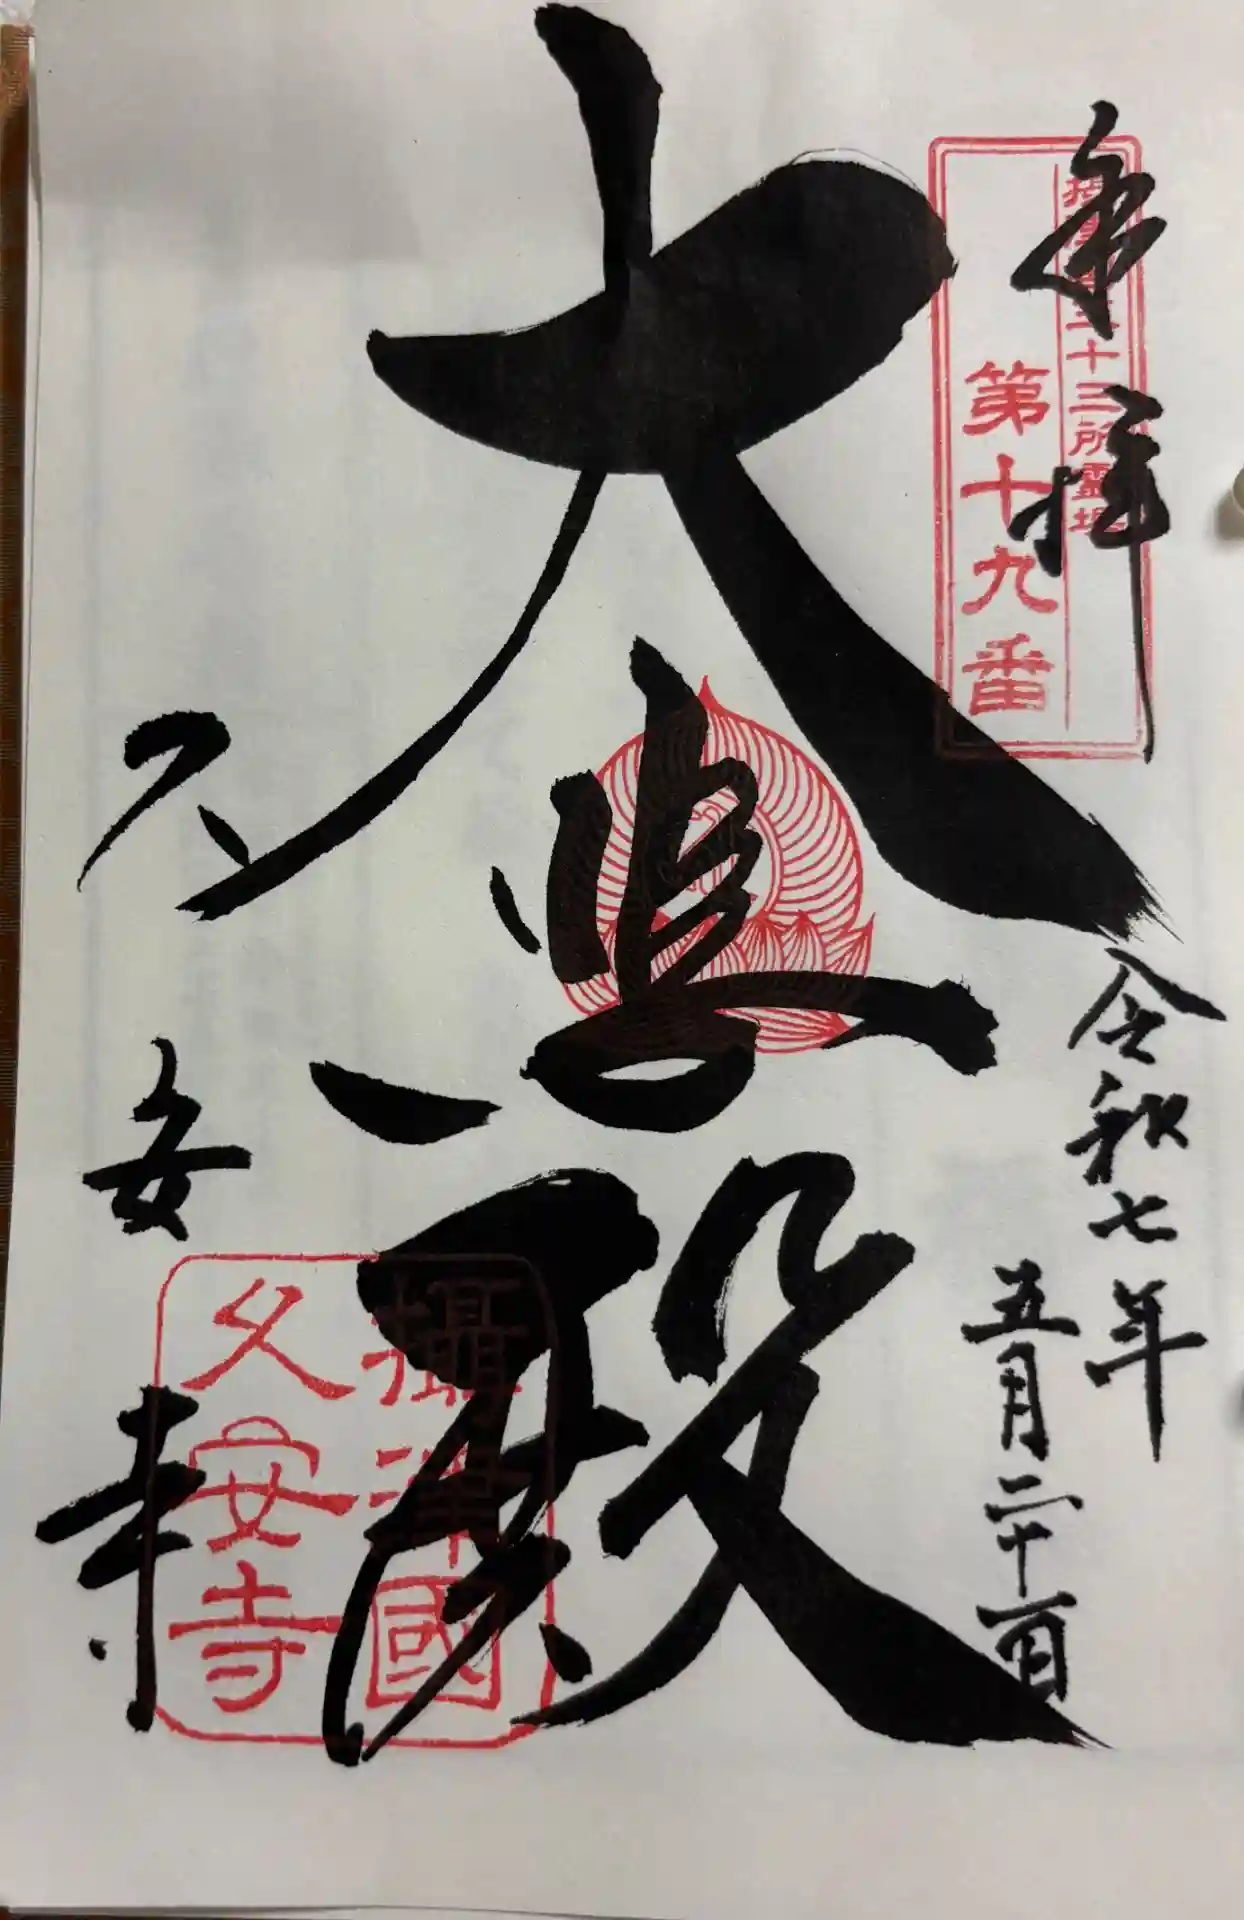 奉拝
摂津国三十三所霊場
第十九番
令和七年
五月二十一日
大悲殿
久安寺
攝津國
久安寺